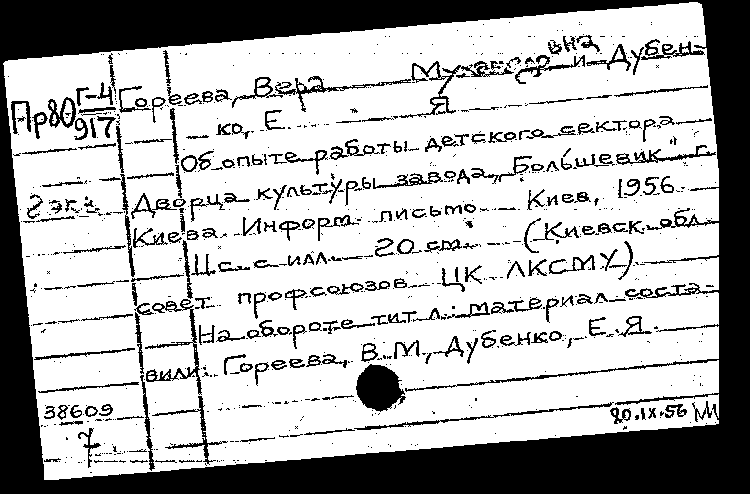 Пр80 Г-4
917
Гореева, Вера и Дубен-
ко, Е Я
Об опыте работы детского сектора
2 экз
Дворца культуры завода „Большевик" г.
Киева. Информ. письмо. Киев, 1956.
11с. с илл. 20 см. (Киевск. обл.
совет профсоюзов ЦК ЛКСМУ)
На обороте тит л.: материал соста-
вили: Гореева, В. М., Дубенко, Е. Я.
38609
20.IX.56